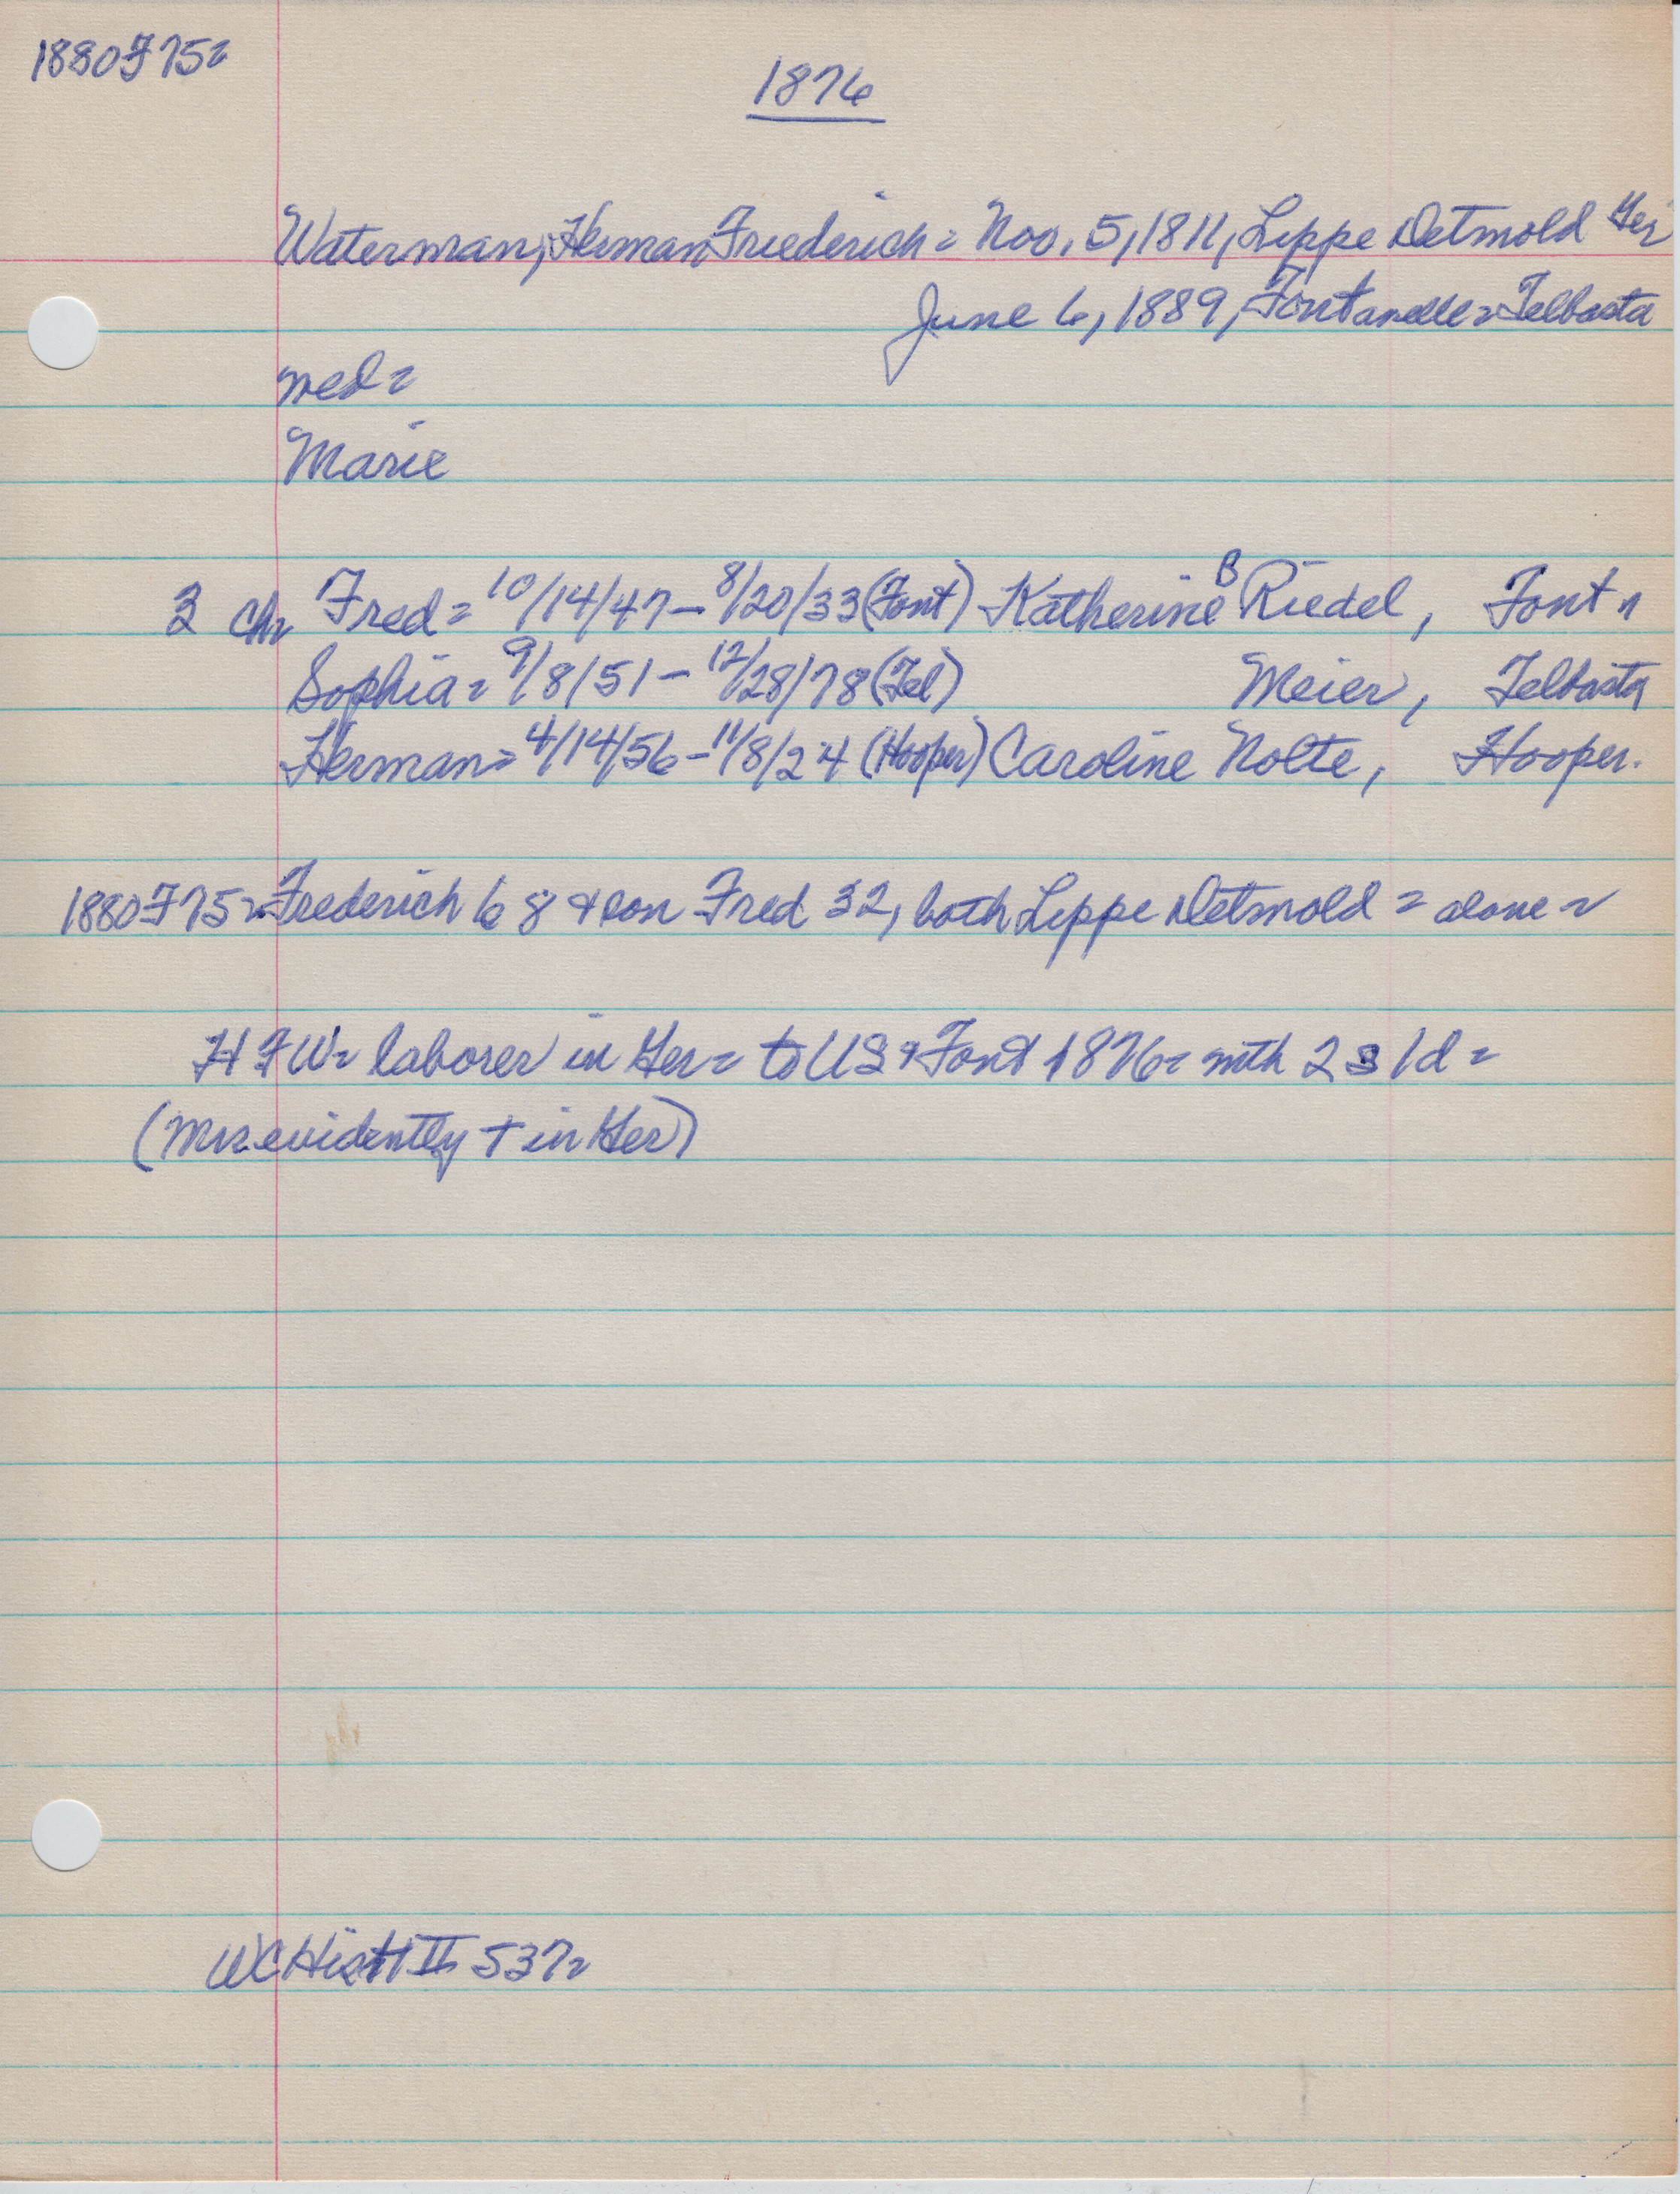 1880F75=
1876
Waterman, Herman Friederich = Nov. 5, 1811, Lippe Detmold Ger
June 6, 1889, Fontanelle = Telbasta
wed =
Marie
3 chr Fred = 10/14/47 - 8/20/33 (Font) Katherine B Riedel, Font n
Sophia = 9/8/51 - 12/28/78 (Tel) Meier, Telbasta
Herman = 4/14/56 - 11/8/24 (Hooper) Caroline Nolte, Hooper.
1880F75 = Frederich 68 & son Fred 32, both Lippe Detmold = alone =
H F W = laborer in Ger = to US & Font 1876 = with 2 s 1 d =
(Mrs evidently + in Ger)
WC Hist II 537=